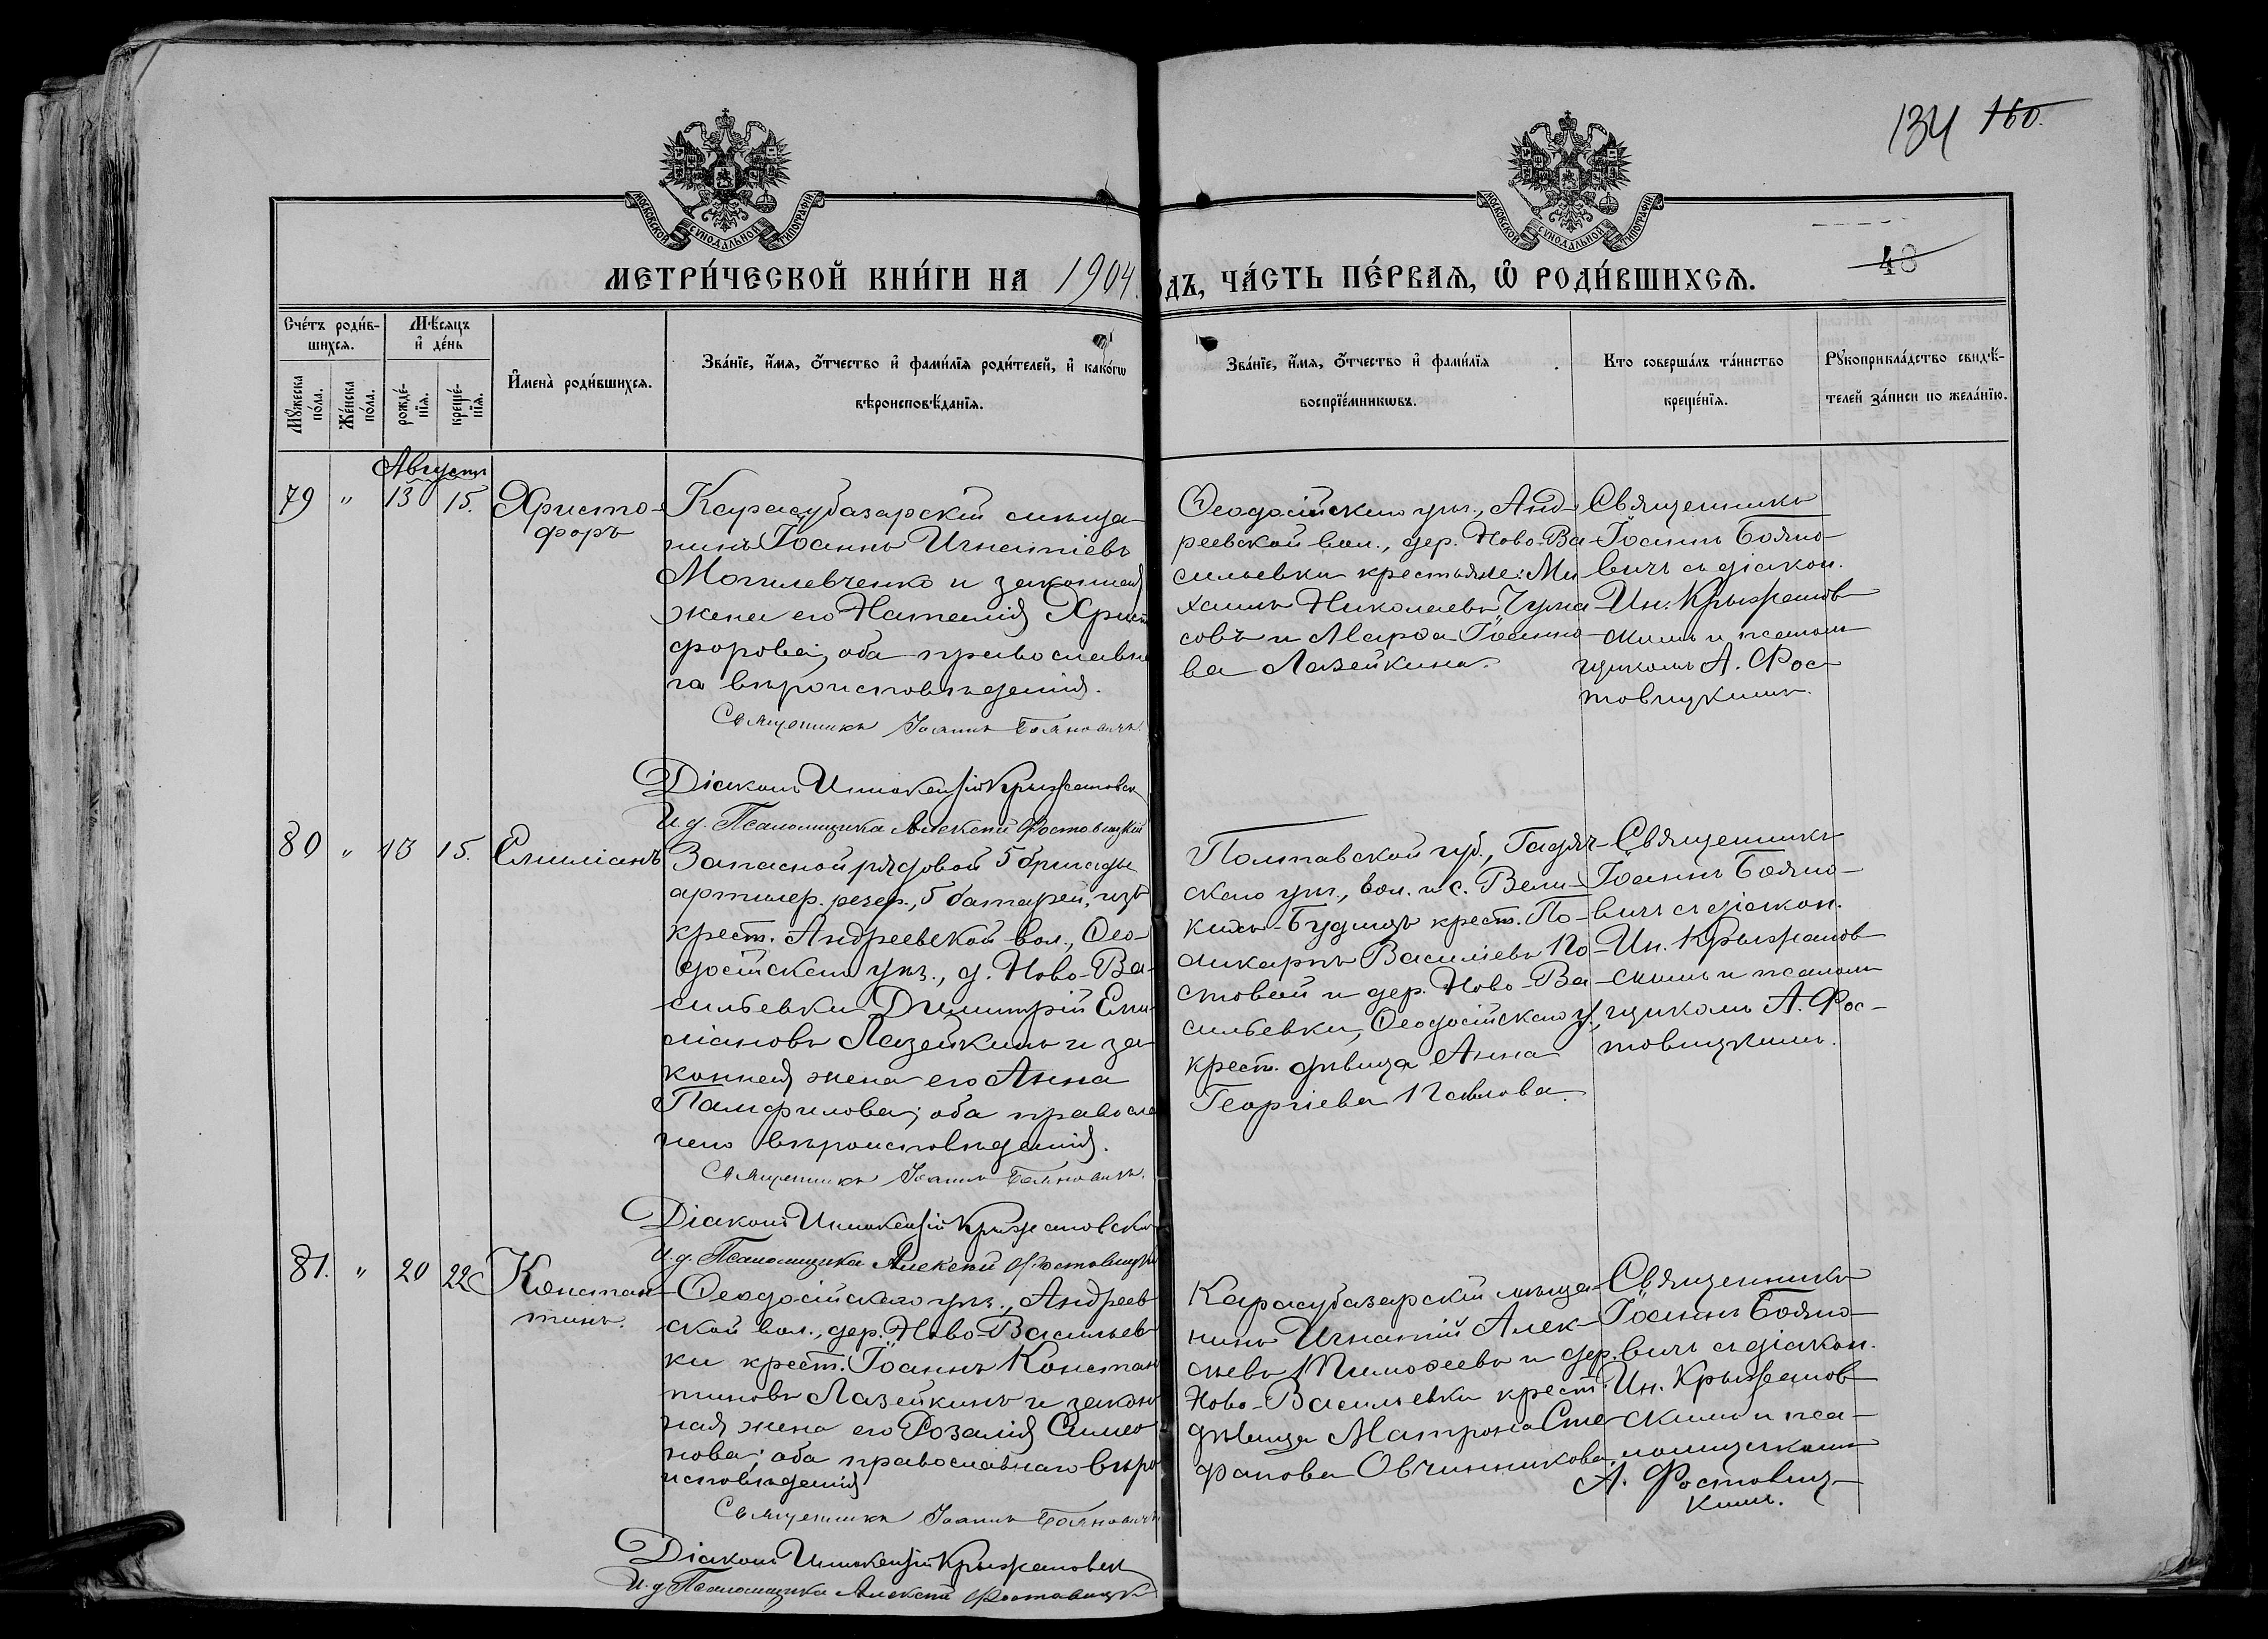 134 160.
МОСКОВСКОЙ СѴНОДАЛЬНОЙ ТИПОГРАФІИ
МОСКОВСКОЙ СѴНОДАЛЬНОЙ ТИПОГРАФІИ
48
МЕТРИ́ЧЕСКОЙ КНИ́ГИ НА 1904.
одъ, ЧА́СТЬ ПЕ́РВАЯ, Ѡ РОДИ́ВШИХСЯ.
Сче́тъ роди́в-
шихся.
Мꙋжеска по́ла.
Же́нска по́ла.
Мѣ́сяцъ
и҆ де́нь
рожде́-
нїя.
креще́-
нїя.
И҆мена̀ роди́вшихся.
Зва́нїе, и҆́мя, ѻ҆́тчество и҆ фами́лїя роди́телей, и҆ како́гѡ
вѣроисповѣ́данїя.
Зва́нїе, и҆́мя, ѻ҆́тчество и҆ фами́лїя
воспрїе́мникѡвъ.
Кто соверша́лъ та́инство
креще́нїя.
Рꙋкоприкла́дство свидѣ́-
телей за́писи по жела́нїю.
Августъ
79 " 13 15.
Христо-
форъ
Карасубазарскій мѣща-
нинъ Іоаннъ Игнатіевъ
Могилевченко и законная
жена его Наталія Христ
форова; оба православна
го вѣроисповѣданія.
Священникъ Іоаннъ Бояновичъ.
Діаконъ Иннокентій Крыжановск
И. д. Псаломщика Алексій Фостовицкій
Ѳеодосійскаго уѣз., Анд
реевской вол., дер. Ново-Ва-
сильевки крестьяне: Ми
хаилъ Николаевъ Чума
совъ и Марѳа Іоанно
ва Лазейкина.
Священникъ
Іоаннъ Бояно-
вичъ съ діакон.
Ин. Крыжанов
скимъ и псалом
щикомъ А. Фос-
товицкимъ.
80 " 13 15.
Емиліанъ
Запасной рядовой 5 бригады
артилер. резер., 5 батареи, изъ
крест. Андреевской вол., Ѳео-
досійскаго уѣз., д. Ново-Ва-
сильевки Димитрій Еми-
ліановъ Лазейкинъ и за
конная жена его Анна
Памфилова; оба правосла
наго вѣроисповѣданія.
Священникъ Іоаннъ Бояновичъ.
Діаконъ Иннокентій Крыжановскі
И. д. Псаломщика Алексій Фостовицкі
Полтавской губ., Гадяч-
скаго уѣз., вол. и с. Вели-
кихъ-Будищъ крест. По-
ликарпъ Василіевъ По
стовой и дер. Ново-Ва
сильевки, Ѳеодосійскаго у.,
крест. дѣвица Анна
Георгіева Павлова.
Священникъ
Іоаннъ Бояно-
вичъ съ діакон.
Ин. Крыжанов
скимъ и псалом
щикомъ А. Фос-
товицкимъ.
81. " 20 22
Констан-
тинъ.
Ѳеодосійскаго уѣз., Андреев
ской вол., дер. Ново-Васильев
ки крест. Іоаннъ Констан
тиновъ Лазейкинъ и закон
ная жена его Розалія Симео
нова; оба православнаго вѣро
исповѣданія
Священникъ Іоаннъ Бояновичъ
Діаконъ Иннокентій Крыжановск
И. д. Псаломщика Алексій Фостовицк
Карасубазарскій мѣща-
нинъ Игнатій Алек-
сѣевъ Тимоѳеевъ и дер.
Ново-Васильевки крест.
дѣвица Матрона Сте
фанова Овчинникова.
Священникъ
Іоаннъ Бояно-
вичъ съ діакон.
Ин. Крыжанов
скимъ и пса-
ломщикомъ
А. Фостовиц-
кимъ.